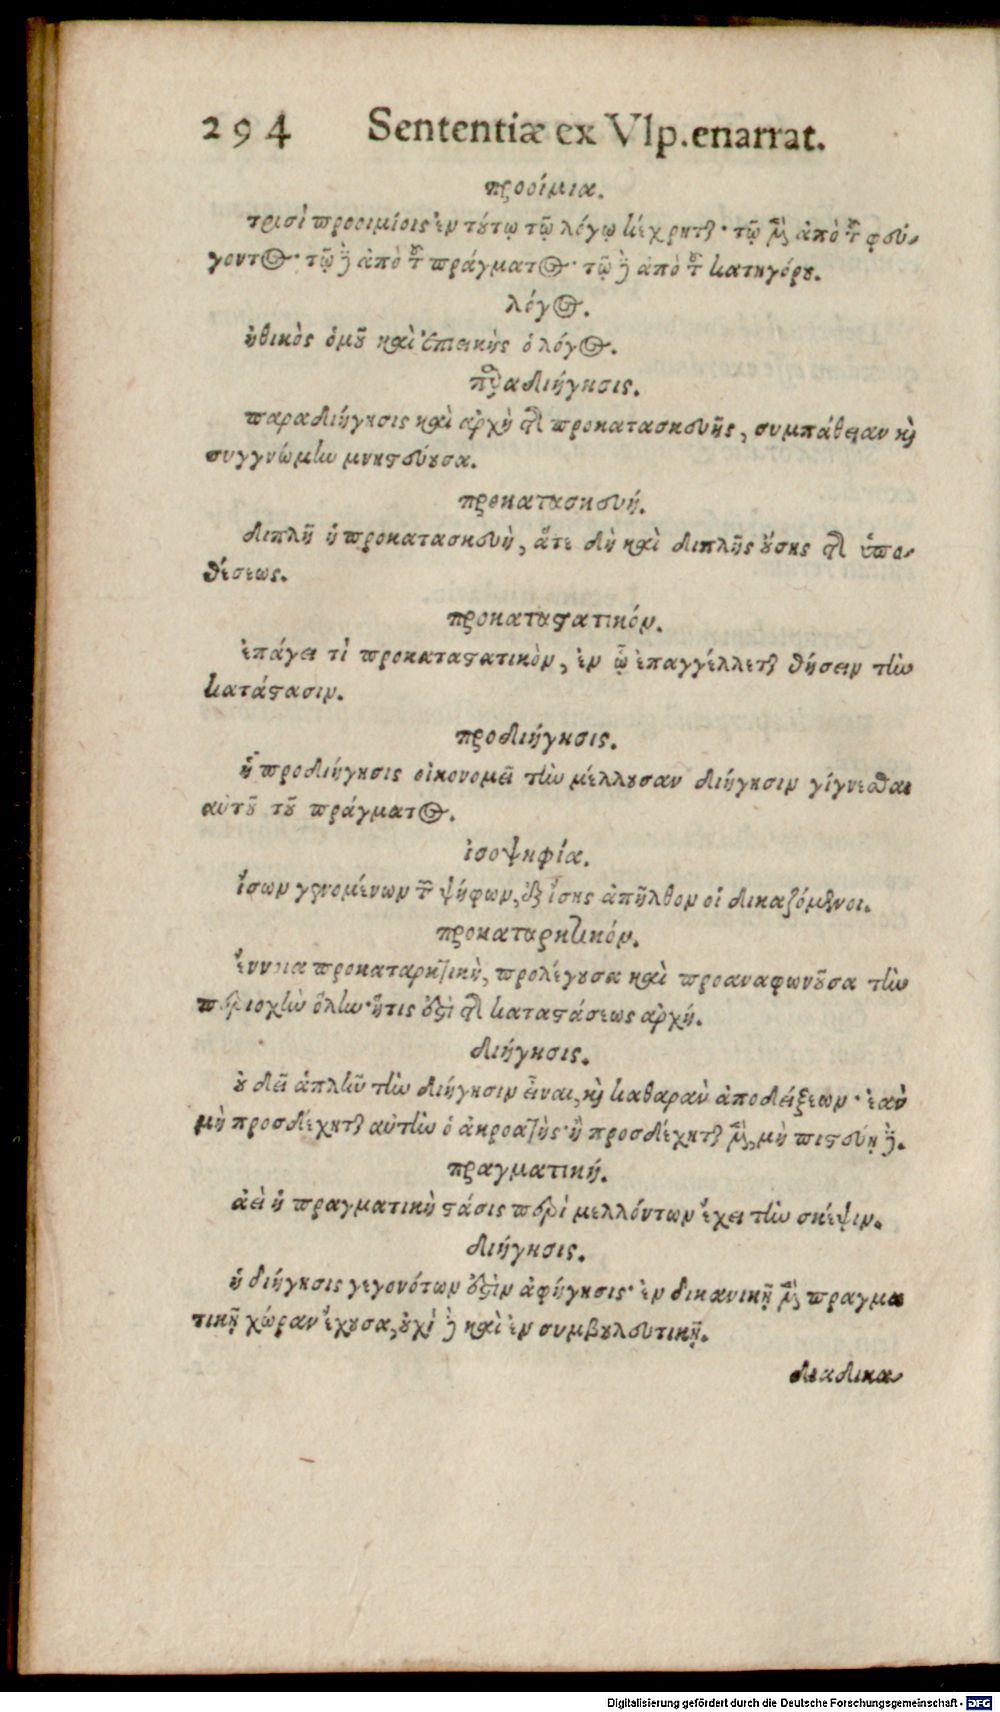 294 Sententiæ ex Vlp. enarrat.
προοίμια.
τρισὶ προοιμίοις ἐν τούτῳ τῷ λόγῳ κέχρηται· τῷ μὲν ἀπὸ τοῦ φεύ-
γοντος· τῷ δὲ ἀπὸ τοῦ πράγματος· τῷ δὲ ἀπὸ τοῦ κατηγόρου.
λόγος.
ἠθικὸς ὁμοῦ καὶ ἐπιεικὴς ὁ λόγος.
παραδιήγησις.
παραδιήγησις καὶ ἀρχὴ τῆς προκατασκευῆς, συμπάθειαν καὶ
συγγνώμην μνηστεύουσα.
προκατασκευή.
διπλῆ ἡ προκατασκευὴ, ἅτε δὴ καὶ διπλῆς οὔσης τῆς ὑπο-
θέσεως.
προκαταστατικόν.
ἐπάγει τὶ προκαταστατικὸν, ἐν ᾧ ἐπαγγέλλεται θήσειν τὴν
κατάστασιν.
προδιήγησις.
ἡ προδιήγησις οἰκονομεῖ τὴν μέλλουσαν διήγησιν γίγνεσθαι
αὐτοῦ τοῦ πράγματος.
ἰσοψηφία.
ἴσων γενομένων τῶν ψήφων, ἐξ ἴσης ἀπῆλθον οἱ δικαζόμενοι.
προκαταρκτικόν.
ἔννοια προκαταρκτικὴ, προλέγουσα καὶ προαναφωνοῦσα τὴν
περιοχὴν ὅλην· ἥτις ἐστὶ τῆς καταστάσεως ἀρχή.
διήγησις.
οὐ δεῖ ἁπλῶν τὴν διήγησιν εἶναι, καὶ καθαρὰν ἀποδείξεων· ἐὰν
μὴ προσδέχηται αὐτὴν ὁ ἀκροατὴς· ἢ προσδέχηται μὲν, μὴ πιστεύῃ δὲ.
πραγματική.
ἀεὶ ἡ πραγματικὴ στάσις περὶ μελλόντων ἔχει τὴν σκέψιν.
διήγησις.
ἡ διήγησις γεγονότων ἐστὶν ἀφήγησις· ἐν δικανικῇ μὲν πραγμα
τικῇ χώραν ἔχουσα, οὐχὶ δὲ καὶ ἐν συμβουλευτικῇ.
διαδικα-
Digitalisierung gefördert durch die Deutsche Forschungsgemeinschaft - DFG